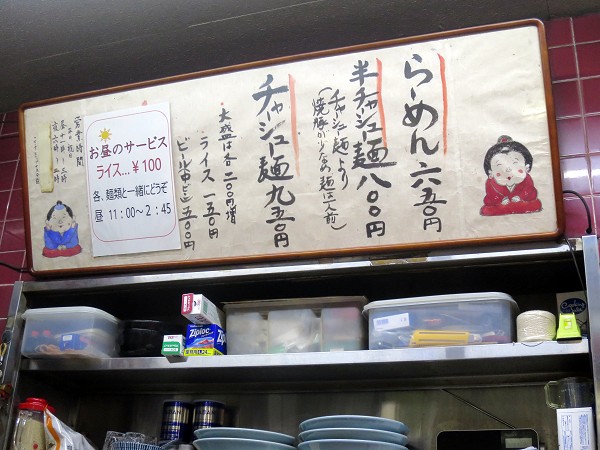 らーめん 六五〇円
半チャーシュー麺 八〇〇円
チャーシュー麺より
チャーシュー麺 九五〇円
大盛は各 二〇〇円増
ライス 一五〇円
ビール中ビン 五〇〇円
お昼のサービス
ライス…¥100
各、麺類と一緒にどうぞ
昼 11:00～2:45
営業時間
Ziploc